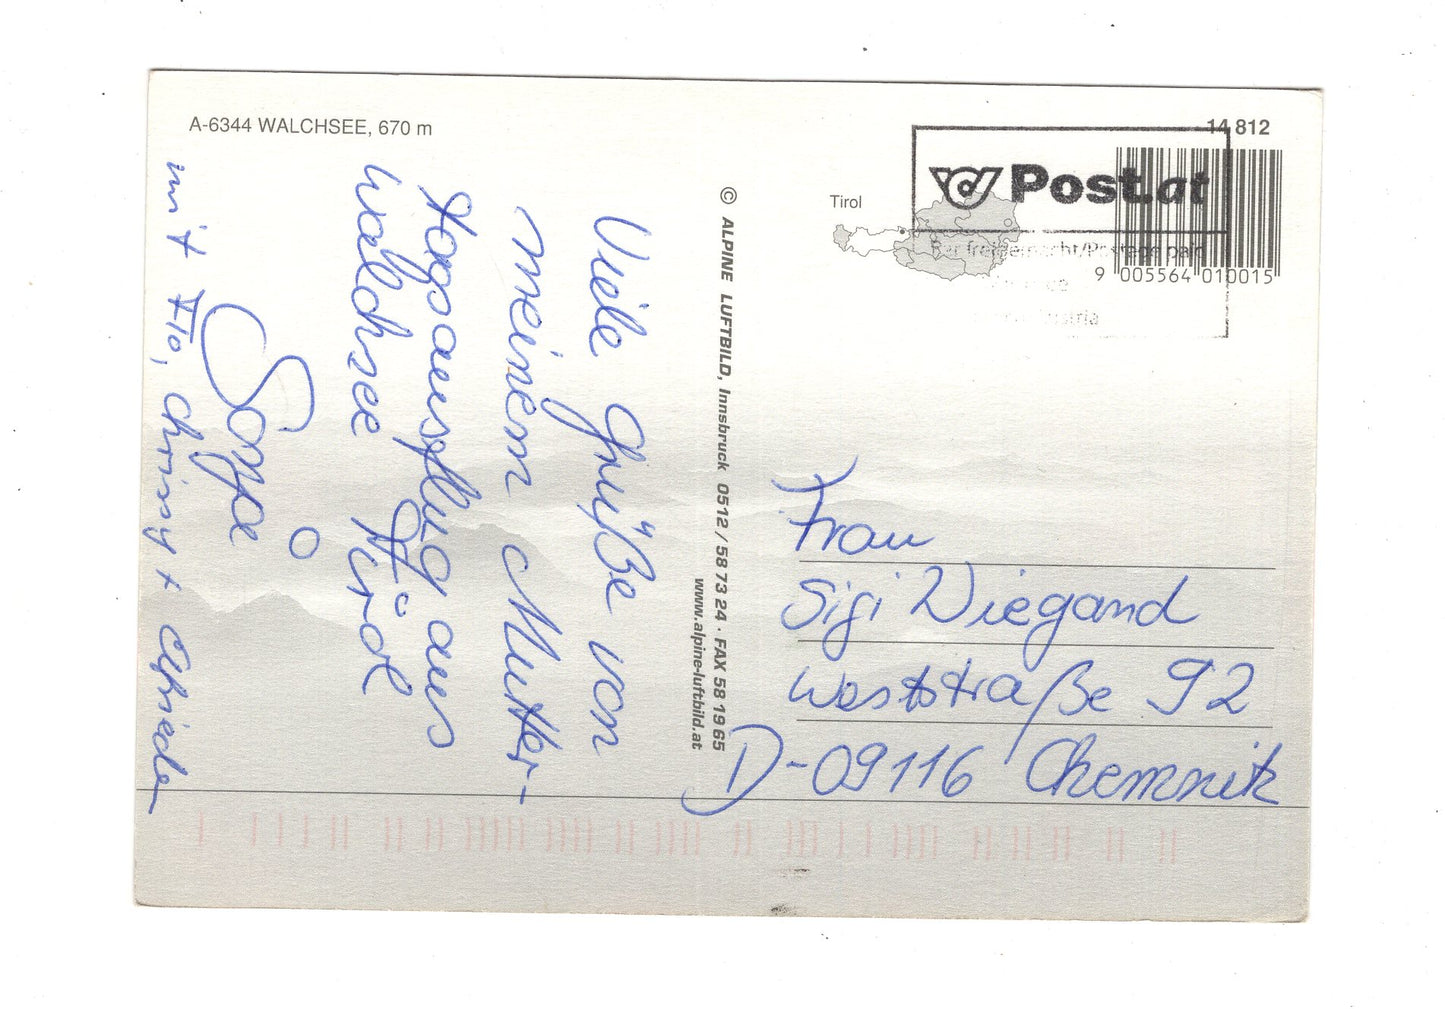 A-6344 WALCHSEE, 670 m
Viele Grüße von
meinem Mutter-
tagsausflug aus
Walchsee Tirol
Sonja
mit Flo, Chrissy +
© ALPINE LUFTBILD, Innsbruck 0512 / 58 73 24 · FAX 58 19 65
www.alpine-luftbild.at
14 812
Post.at
Tirol
Bar freigemacht/Postage paid
Austria
9 005564 010015
Frau
Sigi Wiegand
Weststraße 92
D-09116 Chemnitz